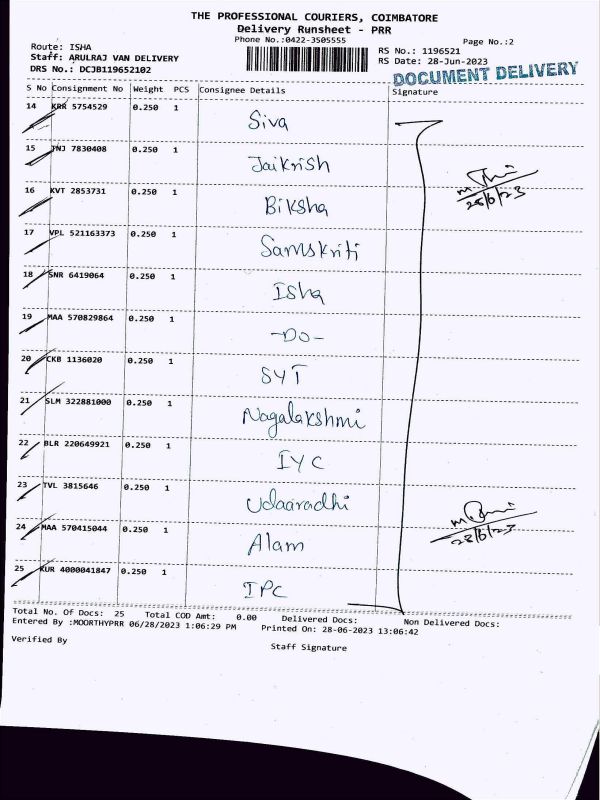 THE PROFESSIONAL COURIERS, COIMBATORE
Delivery Runsheet - PRR
Phone No.:0422-3505555
Page No.:2
Route: ISHA
RS No.: 1196521
Staff: ARULRAJ VAN DELIVERY
RS Date: 28-Jun-2023
DRS No.: DCJB119652102
DOCUMENT DELIVERY
S No Consignment No Weight PCS Consignee Details Signature
14 KRR 5754529 0.250 1 Siva
15 TNJ 7830408 0.250 1 Jaikrish
16 KVT 2853731 0.250 1 Biksha
28/6/23
17 VPL 521163373 0.250 1 Samskriti
18 SNR 6419064 0.250 1 Isha
19 MAA 570829864 0.250 1 -DO-
20 CKB 1136020 0.250 1 SYT
21 SLM 322881000 0.250 1 Nagalakshmi
22 BLR 220649921 0.250 1 IYC
23 TVL 3815646 0.250 1 Udaaradhi
24 MAA 570415044 0.250 1 Alam
28/6/23
25 KUR 4000041847 0.250 1 IPC
Total No. Of Docs: 25 Total COD Amt: 0.00 Delivered Docs: Non Delivered Docs:
Entered By :MOORTHYPRR 06/28/2023 1:06:29 PM Printed On: 28-06-2023 13:06:42
Verified By
Staff Signature